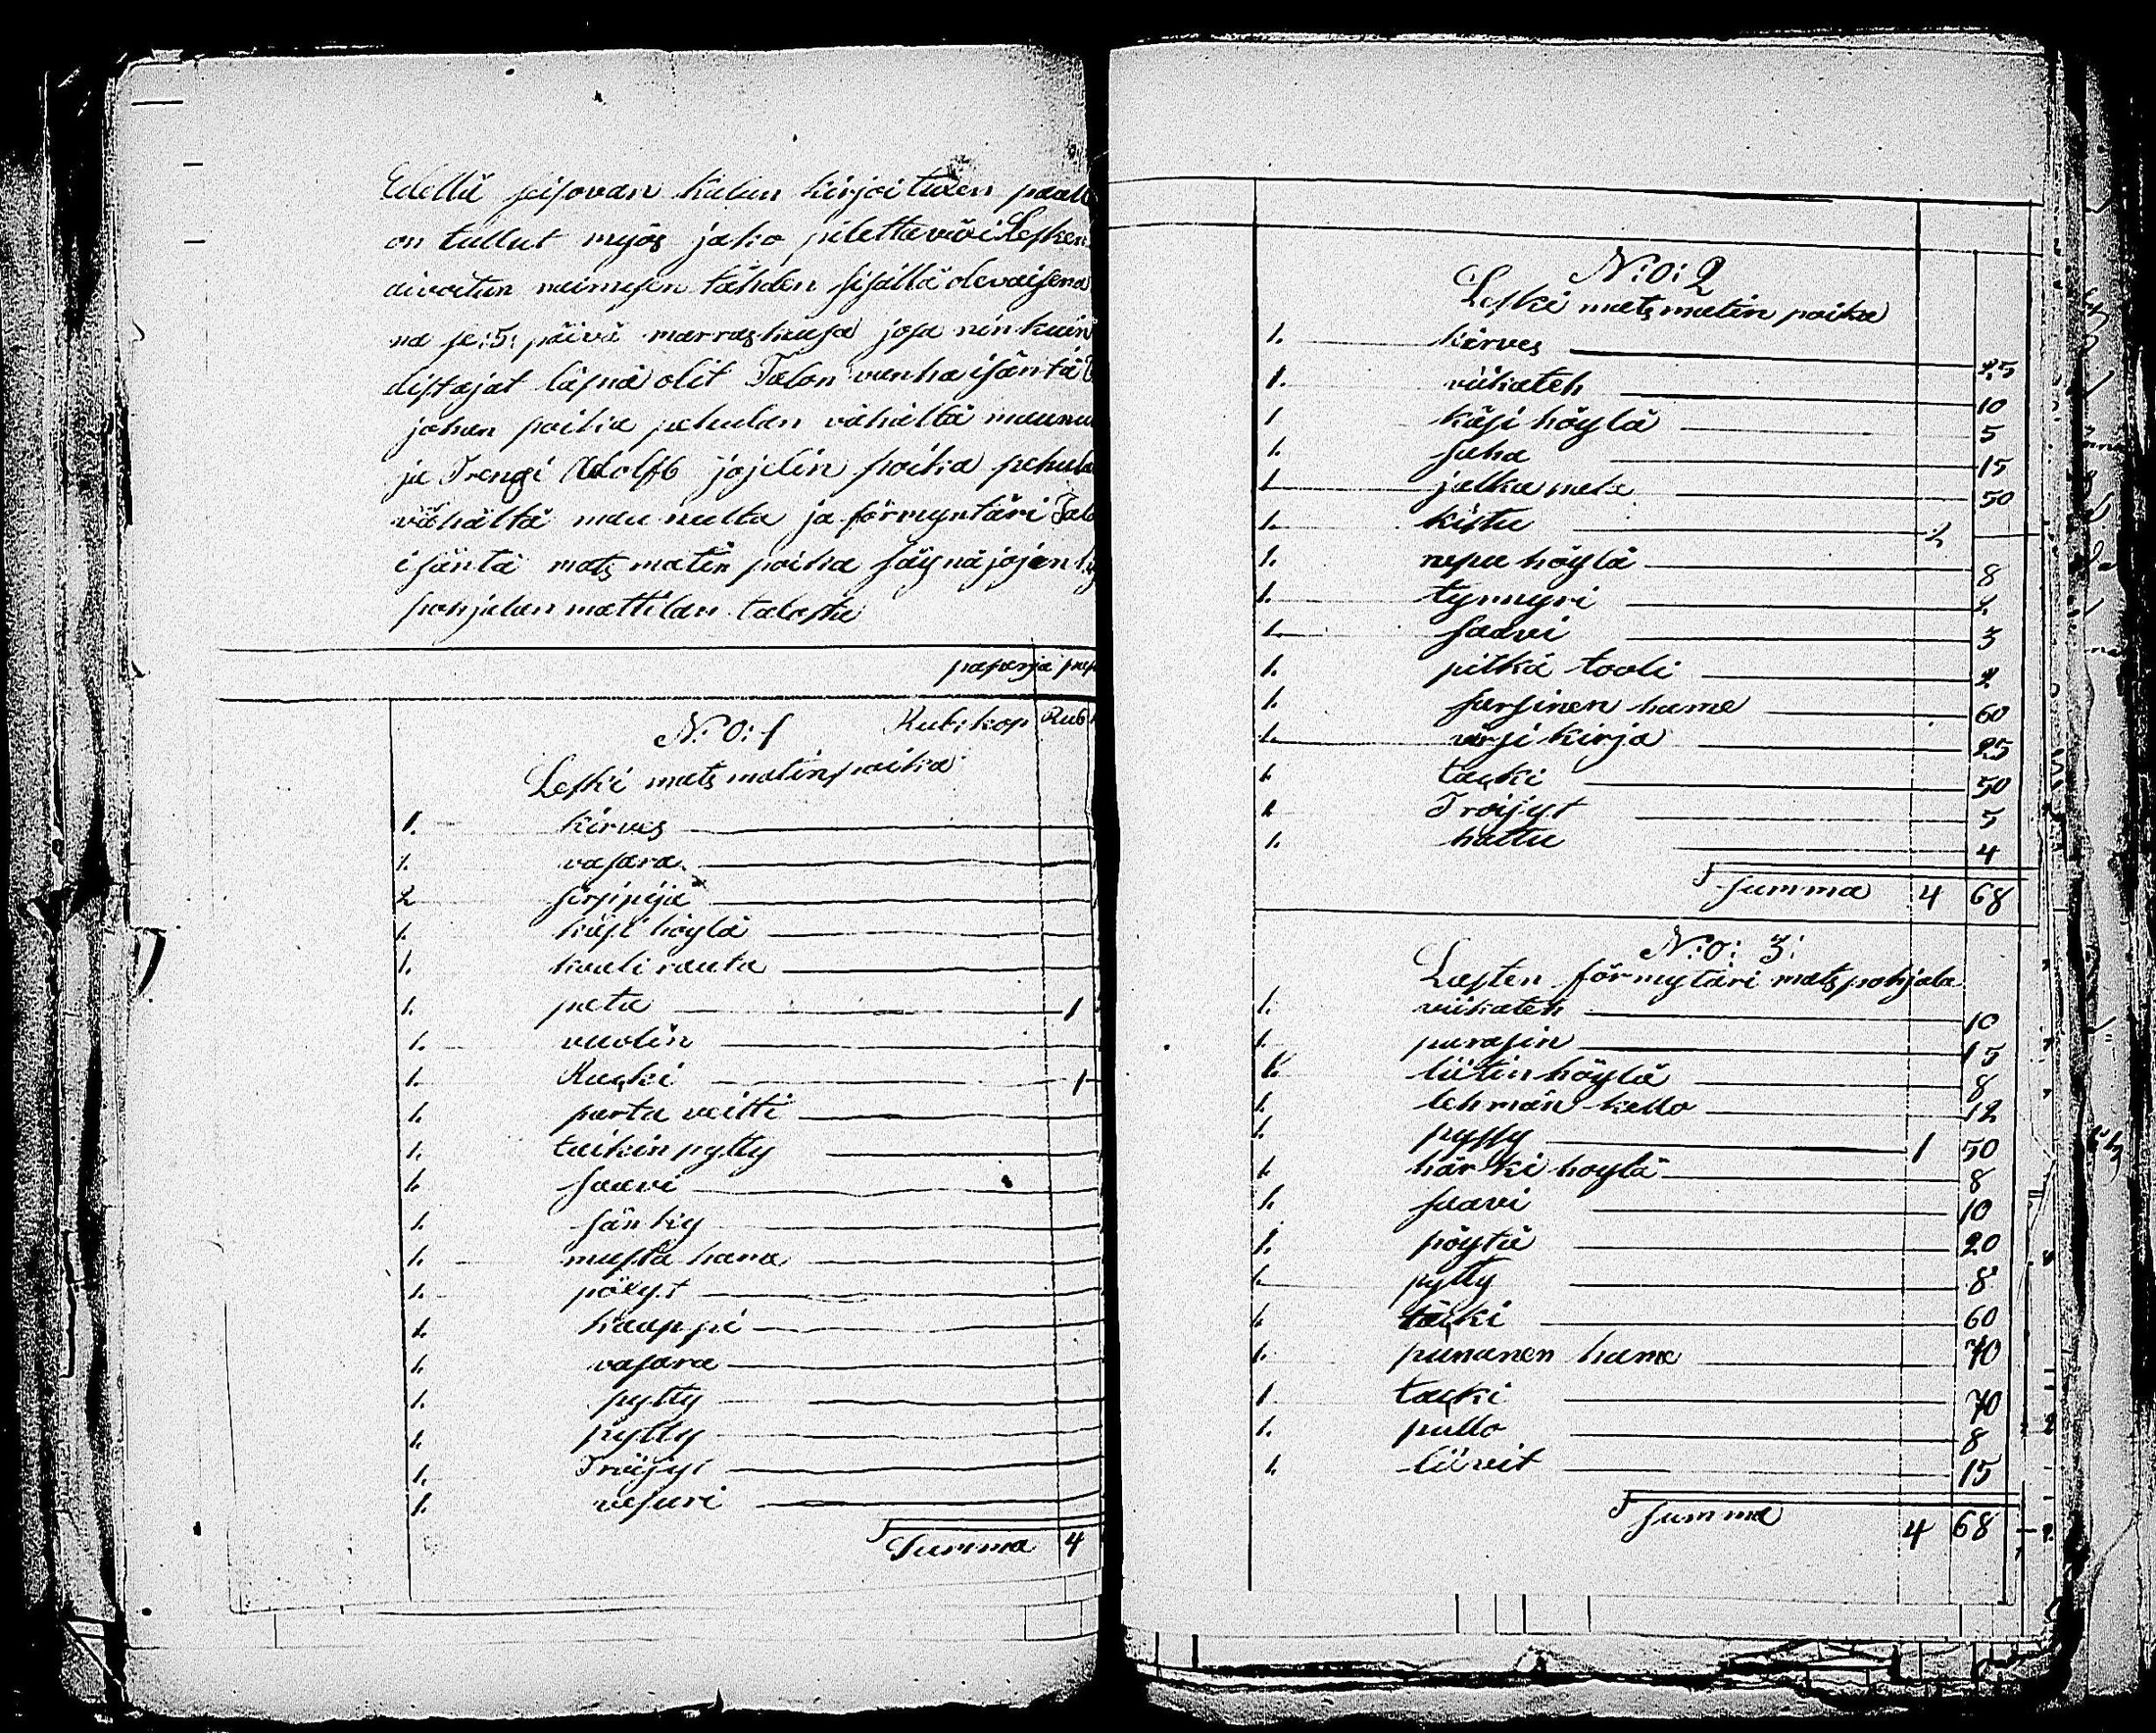 Edellä seisovan kalun kirjoituxen pääll
on tullut myös jako pilettäväxi Lesken
aivotun naimisen tähden sisällä olevaisena
na se: 5: päivä marraskuusa josa nin kuin
distajat läsnä olit Talon vanha isäntä
johan poika pehulan vähältä maunu
ja Trengi Adolf jojelin poika pehula
vähältä maunulta ja förmyntäri Talo
isäntä mats matin poika säysnäjojen
pohjalan mattilan talosta
paperja
N:o: 1 Rub: kop Rub
Leski mats matinpoika
1. kirves
1. vasara
2 sirpipijä
1. käsi höylä
1. kaali rauta
1. pata 1
1. vuolin
1. Kucki 1
1. parta veitti
1. taikinpytty
1. saavi
1. sänky
1. musta hama
1. pölyst
1. kaappi
1. vasara
1. pytty
1. pytty
1. Tröijyt
1. vesuri
Summa 4
N:o: 2
Leski mats matin poika
1. kirves 25
1. viikateh 10
1 käsi höylä 5
1. saha 15
1 jalka pata 50
1. kistu 2
1. nepa höylä 8
1. tynnyri 4
1. saavi 3
1. pitkä tooli 2
1. sarsinen hame 60
1. virsi kirja 25
1 täcki 50
1 Tröijyt 5
1. hattu 4
Summa 4 68
N:o: 3:
Lasten förmytäri mats pohjala
1. viikateh 10
1. purasin 15
1. liitin höylä 8
1. lehmän kello 12
1. pyssy 1 50
1. härki höylä 8
1. saavi 10
1. pöytä 20
1. pytty 8
1 täcki 60
1. punanen hame 70
1. täcki 70
1. pullo 8
1. liivit 15
Summa 4 68